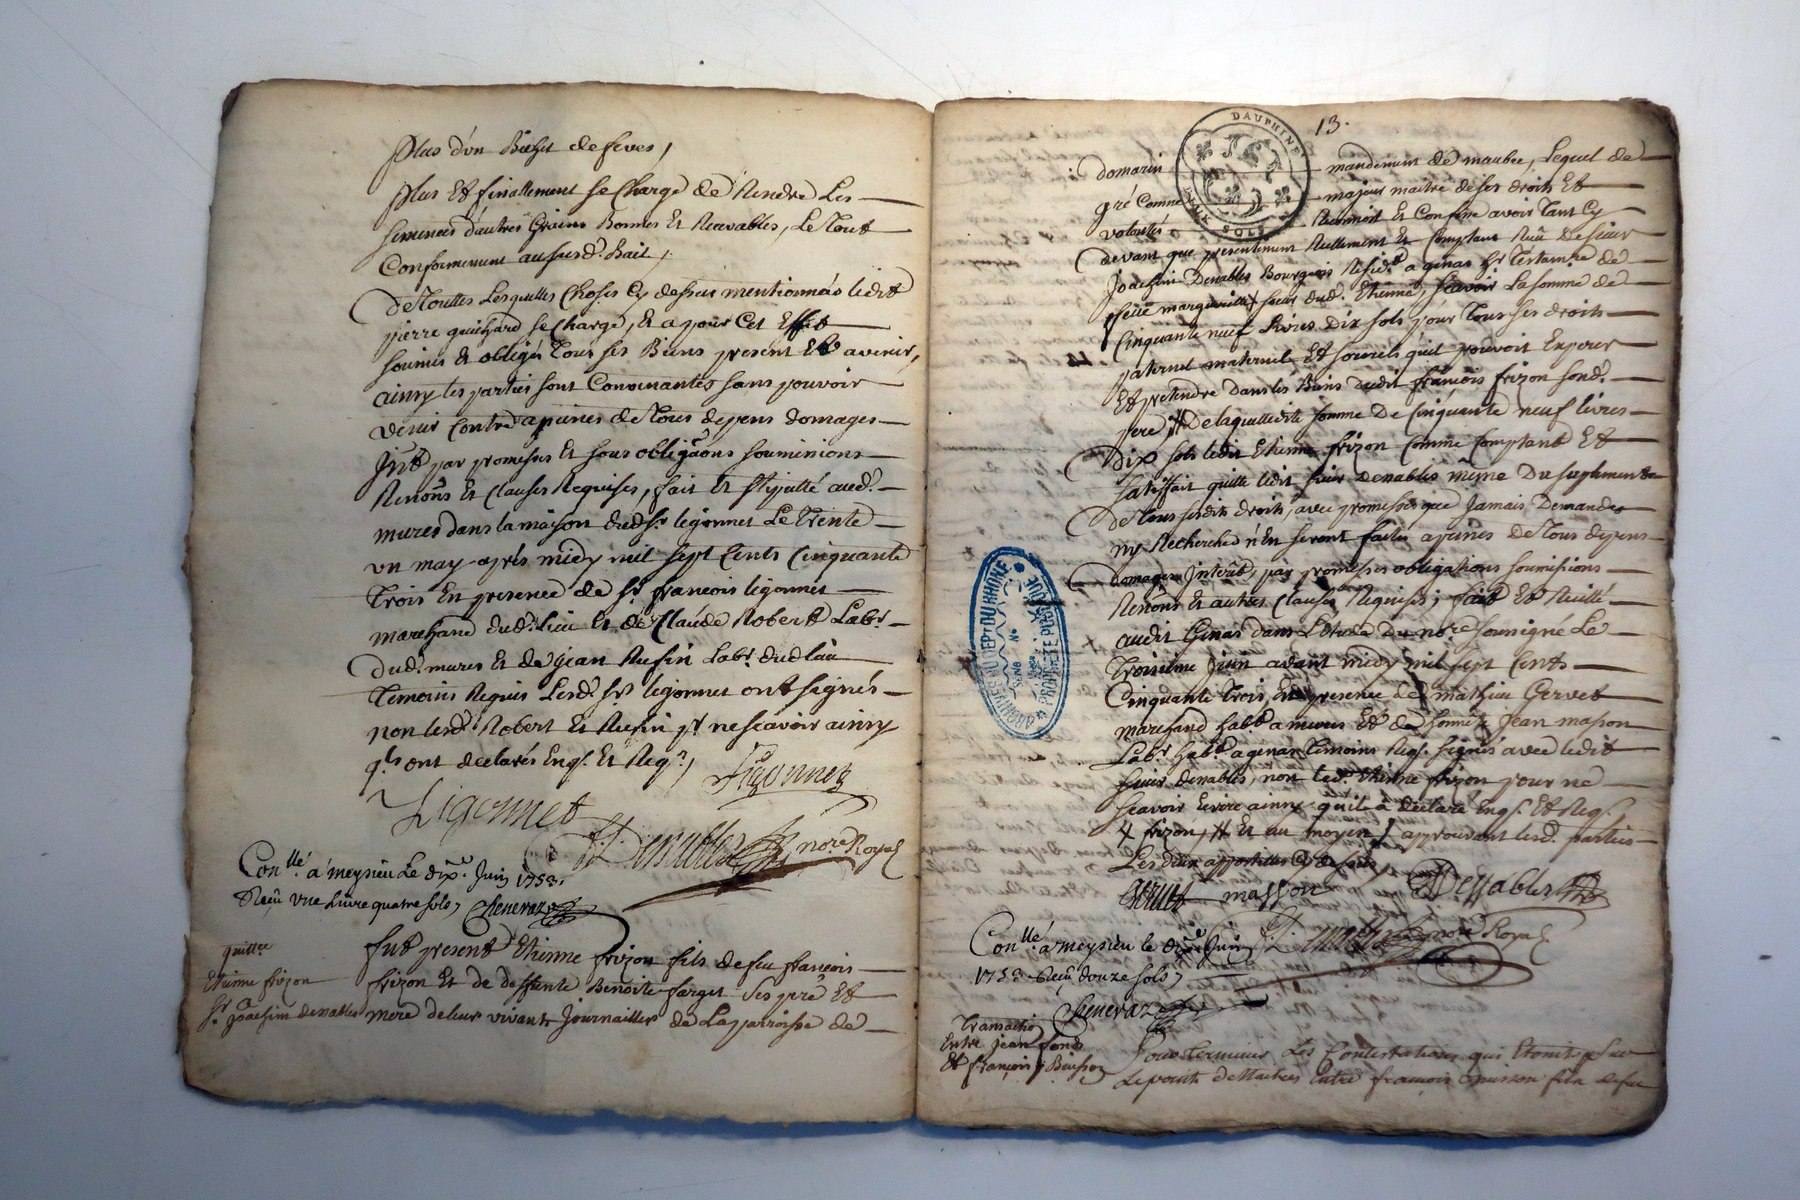 Plus d'un Bichet de feves,
Plus Et finallement se Charge de Rendre Les
semences d'autres Grains Bonnes Et Recevables, Le Tout
Conformement au susd. Bail,
De Touttes Lesquelles Choses Cy dessus mentionnées ledit
pierre guichard se Charge, Et a pour Cet Effet
soumis Et obligés Tous ses Biens present Et avenir,
ainsy les parties sont Convenantes sans pouvoir
venir Contre a peines de Tous depens domages
Int par promesses Et sous obligaons soumissions
Renons Et Clauses Requises, fait Et stipullé aud.
mures dans la maison dud sr legonnet Le Trente
un may après midy mil sept Cents Cinquante
Trois En presence de sr françois legonnet
marchand dud. lieu Et de Claude Robert Labr
dud. mures Et de jean Rufin Labr. dud lieu
Temoins Requis Lesd. srs legonnet ont signés
non lesd Robert Et Rufin pr ne scavoir ainsy
qls ont declarés Enq. Et Req.,
Ligonnet
Ligonnet
nore Royal
Conllé a meysieu Le dixe. Juin 1753.
Reçu une Livre quatre sols, Cheneraz
quittce
Etienne frizon
Sr. joachim desnables
fut present Etienne frizon fils de feu françois
frizon Et de deffunte Benoite farget ses pere Et
mere de leur vivants Journaillier de La parroisse de
DAUPHINE
SOLS
13.
domarin mandement de maubec, Lequel de
gré Comme majeur maitre de ses droits Et
volontés Reconnoit Et Confesse avoir Tant Cy
devant que presentement Reellement Et Comptant Reçu De sieur
Joachim Denables Bourgeois Residt a genas hr Testamre de
feüe margueritte soeur dud. Etienne, scavoir La somme de
Cinquante neuf Livres Dix sols pour Tous ses droits
paternel maternel Et sororels quil pouvoit Esperer
Et pretendre dans les Biens dudit françois frizon sond.
pere // De laquelledite somme De Cinquante neuf livres
Dix sols ledit Etienne frizon Comme Comptant Et
satisfait quitte ledit sieur denables même Du suplement
de Tous sesdits droits, avec promesse que Jamais Demande
ny Recherche n'En seront faites a peines De Tous depens
domages Interêt, par promesses obligations soumissions
Renons Et autres Clauses Requises; fait Et Recitté
audit Genas dans L'Etude Du nore soussigné Le
Troisieme Juin avant midy mil sept Cents
Cinquante Trois En presence de mathieu Gervet
marchand habt a mures Et de honnete Jean masson
Labr habt a genas Temoins Req. signés avec ledit
sieur denables, non led. Etienne frizon pour ne
scavoir Ecrire ainsy qu'il à declaré Enq. Et Req.
frizon, // Et au moyen / approuvant lesd. parties
Les deux appostilles Cy dessus
Gervet masson Dessables
nore Royal
Conllé a meysieu le dixe Juin
1753 Reçu douze sols,
Cheneraz
ARCHIVES DU DEPT DU RHONE
PROPRIETE PUBLIQUE
Transaction
Entre jean
Et françois Buisson
Pour Terminer Les Contestations qui Etoint Sur
Le point de Naitres Entre françois Buisson fils de feu